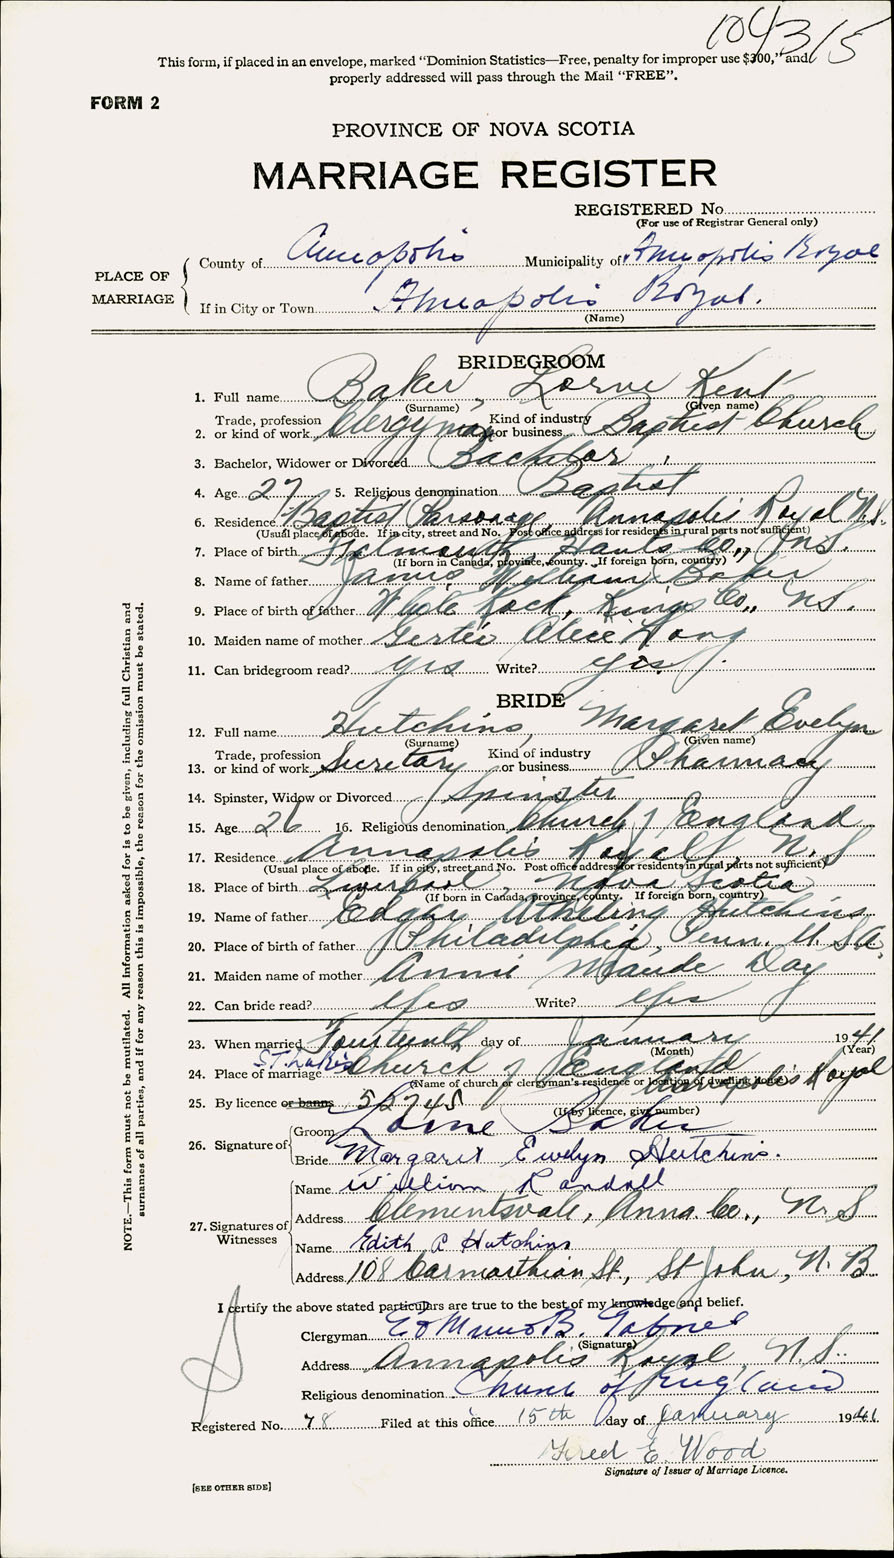 104315
This form, if placed in an envelope, marked "Dominion Statistics—Free, penalty for improper use $300," and
properly addressed will pass through the Mail "FREE".
FORM 2
PROVINCE OF NOVA SCOTIA
MARRIAGE REGISTER
REGISTERED No.
(For use of Registrar General only)
PLACE OF MARRIAGE
County of Annapolis Municipality of Annapolis Royal
If in City or Town Annapolis Royal.
(Name)
BRIDEGROOM
1. Full name Baker, Lorne Kent
(Surname) (Given name)
2. Trade, profession or kind of work Clergyman Kind of industry or business Baptist Church
3. Bachelor, Widower or Divorced Bachelor
4. Age 27 5. Religious denomination Baptist
6. Residence Baptist Parsonage Annapolis Royal N.S.
(Usual place of abode. If in city, street and No. Post office address for residents in rural parts not sufficient)
7. Place of birth Falmouth, Hants Co., N.S.
(If born in Canada, province, county. If foreign born, country)
8. Name of father James William Baker
9. Place of birth of father White Rock, Kings Co., N.S.
10. Maiden name of mother Alice Long
11. Can bridegroom read? yes Write? yes.
BRIDE
12. Full name Hutchins, Margaret Evelyn
(Surname) (Given name)
13. Trade, profession or kind of work Secretary Kind of industry or business Pharmacy
14. Spinster, Widow or Divorced Spinster
15. Age 26 16. Religious denomination Church of England
17. Residence Annapolis Royal, N.S
(Usual place of abode. If in city, street and No. Post office address for residents in rural parts not sufficient)
18. Place of birth Liverpool, Nova Scotia
(If born in Canada, province, county. If foreign born, country)
19. Name of father Edgar Hutchins
20. Place of birth of father Philadelphia, Penn. U.S.A.
21. Maiden name of mother Annie Maude Day
22. Can bride read? Yes Write? Yes
23. When married Fourteenth day of January 1941
(Month) (Year)
24. Place of marriage St. Luke's Church of England Annapolis Royal
(Name of church or clergyman's residence or location of dwelling house)
25. By licence or banns 52745
(If by licence, give number)
26. Signature of Groom Lorne Baker
Bride Margaret Evelyn Hutchins.
27. Signatures of Witnesses
Name William Randall
Address Clementsvale, Anna. Co., N.S
Name Edith P Hutchins
Address 108 Carmarthian St., St John, N.B
I certify the above stated particulars are true to the best of my knowledge and belief.
Clergyman Edmund B. Gabriel
(Signature)
Address Annapolis Royal, N.S.
Religious denomination Church of England
Registered No. 78 Filed at this office 15th day of January 1941
Fred E. Wood
Signature of Issuer of Marriage Licence.
[SEE OTHER SIDE]
NOTE.—This form must not be mutilated. All information asked for is to be given, including full Christian and
surnames of all parties, and if for any reason this is impossible, the reason for the omission must be stated.